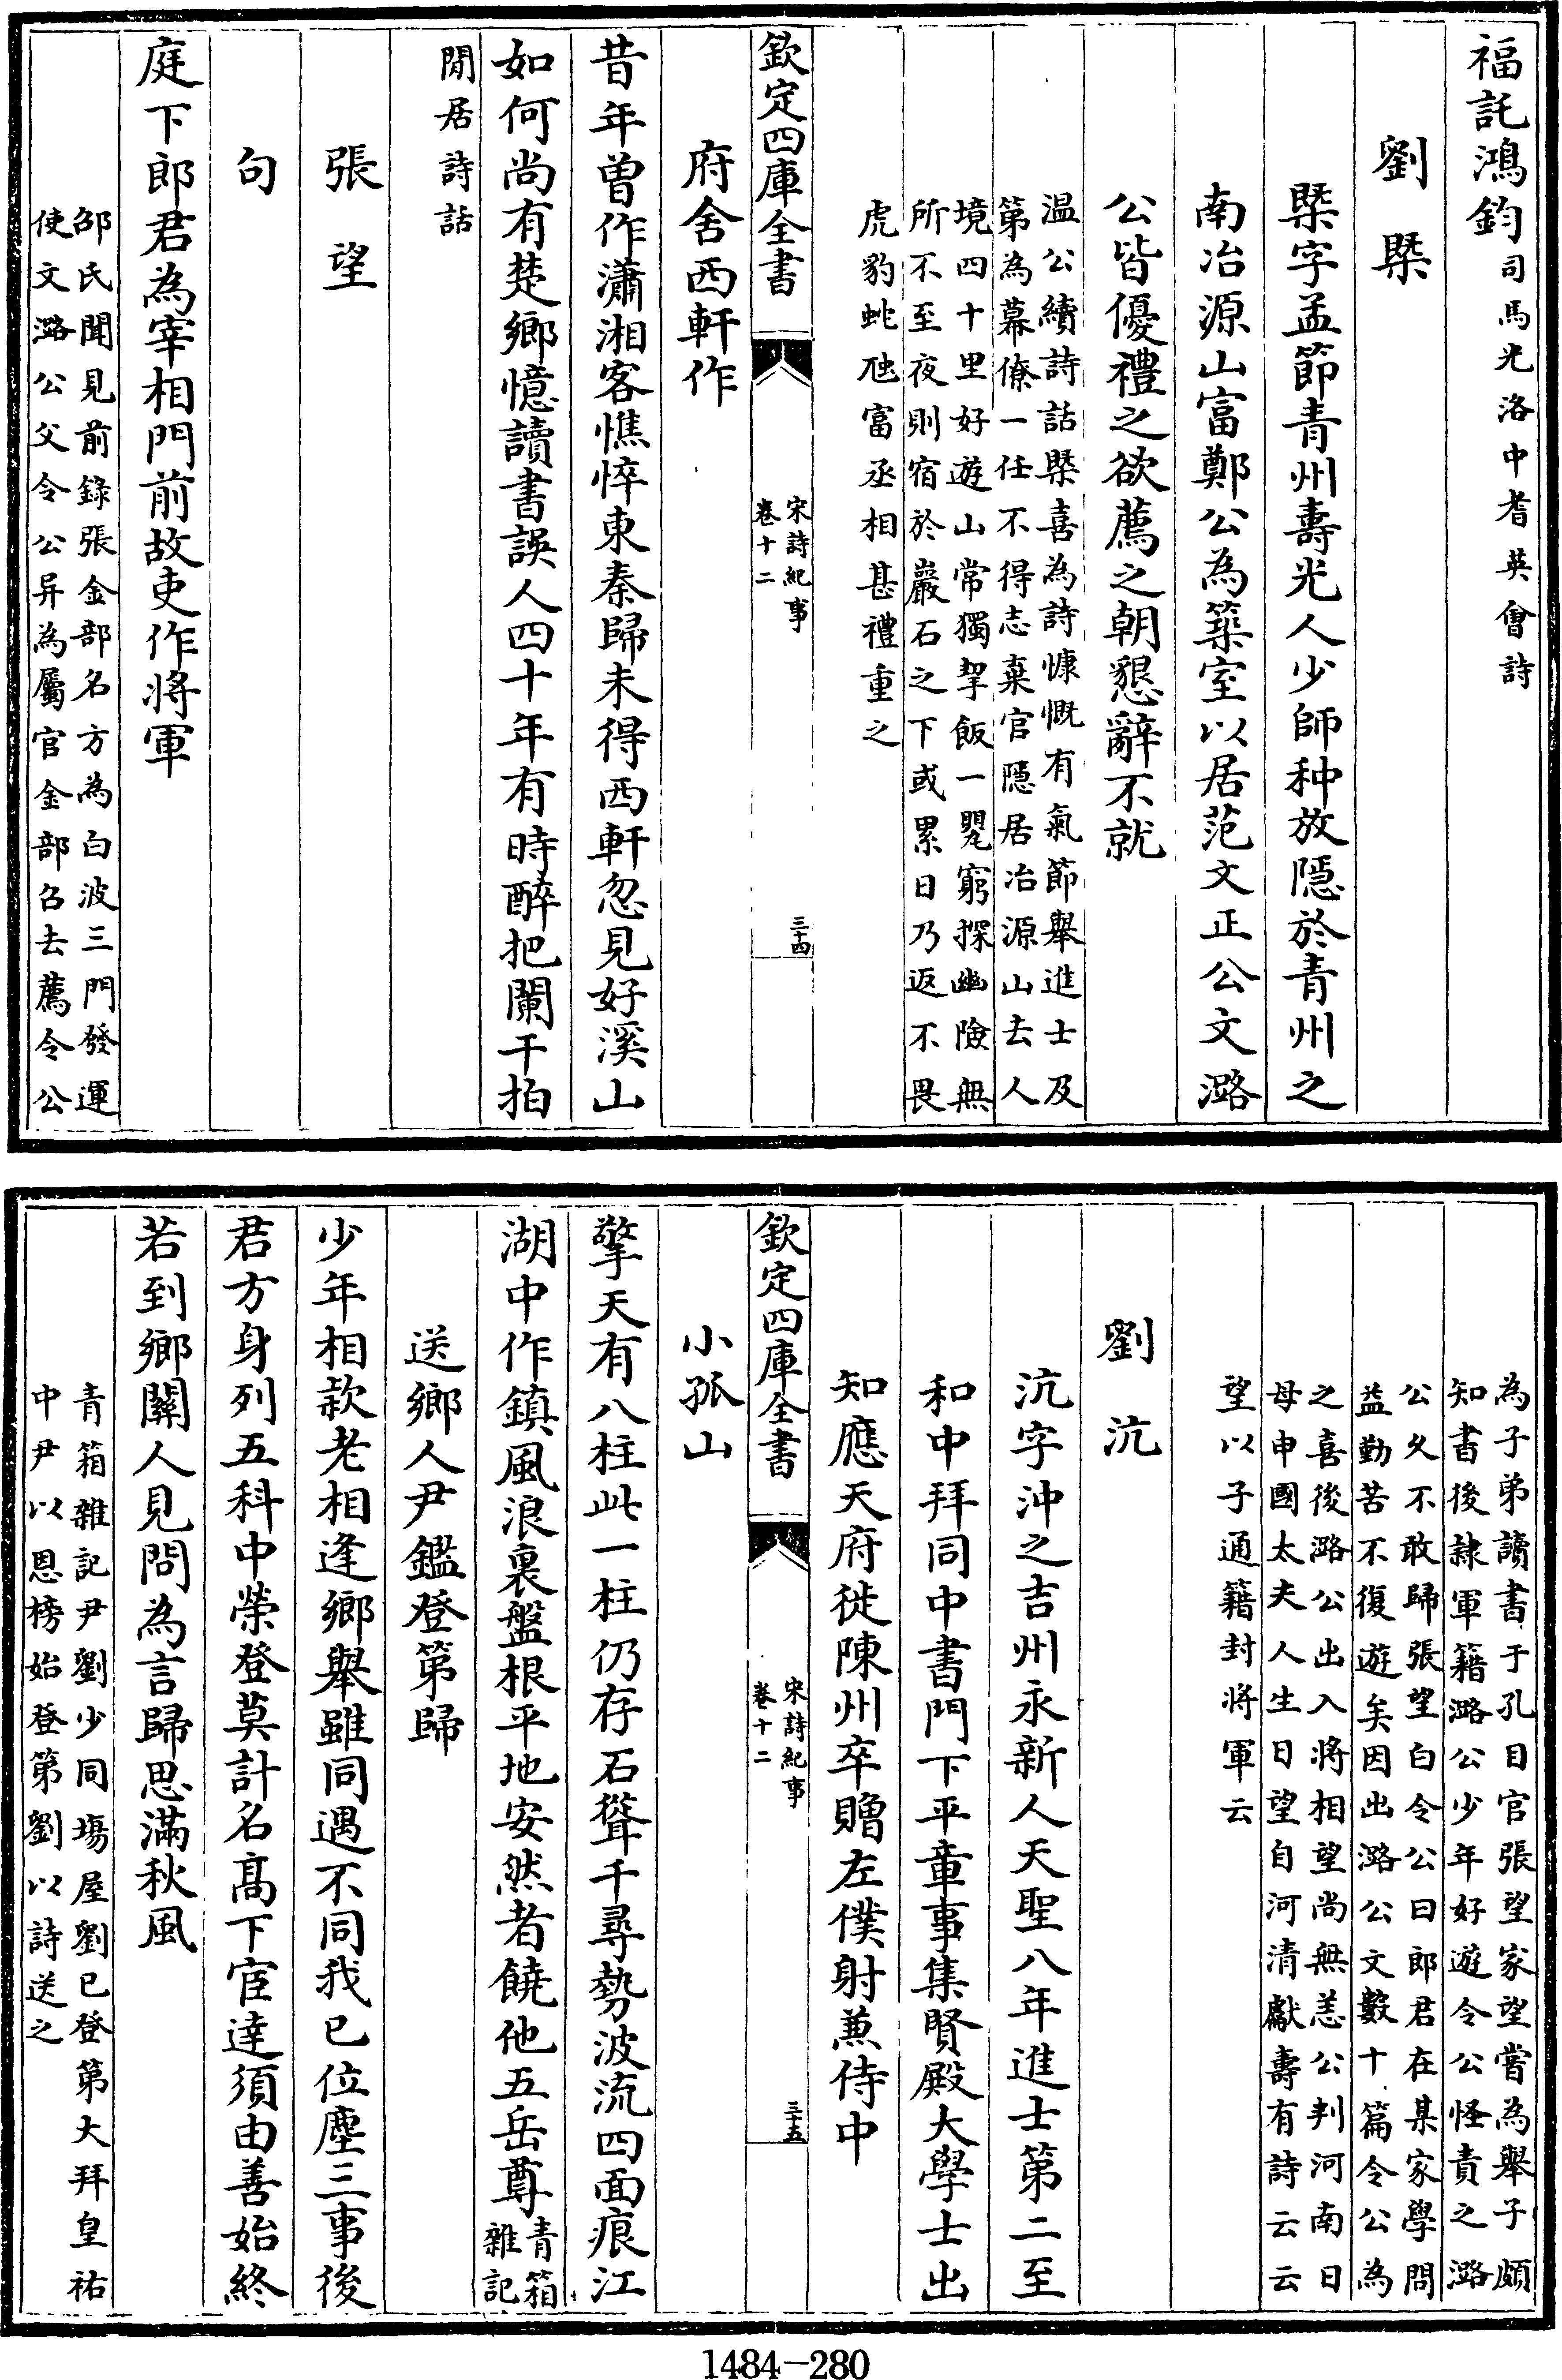 福託鴻鈞司馬光洛中耆英會詩
劉槩
槩字孟節青州壽光人少師种放隱於青州之
南冶源山富鄭公為築室以居范文正公文潞
公皆優禮之欲薦之朝懇辭不就
温公續詩話槩喜為詩慷慨有氣節舉進士及
第為幕僚一任不得志棄官隱居冶源山去人
境四十里好遊山常獨挈飯一罌窮探幽險無
所不至夜則宿於巖石之下或累日乃返不畏
虎豹蛇虺富丞相甚禮重之
欽定四庫全書
宋詩紀事
卷十二
三十四
府舍西軒作
昔年曾作瀟湘客憔悴東秦歸未得西軒忽見好溪山
如何尚有楚鄉憶讀書誤人四十年有時醉把闌干拍
閒居詩話
張望
句
庭下郎君為宰相門前故吏作將軍
邵氏聞見前錄張金部名方為白波三門發運
使文潞公父令公异為屬官金部召去薦令公
為子弟讀書于孔目官張望家望嘗為舉子頗
知書後隷軍籍潞公少年好遊令公怪責之潞
公久不敢歸張望白令公曰郎君在某家學問
益勤苦不復遊矣因出潞公文數十篇令公為
之喜後潞公出入將相望尚無恙公判河南日
母申國太夫人生日望自河清獻壽有詩云云
望以子通籍封將軍云
劉沆
沆字沖之吉州永新人天聖八年進士第二至
和中拜同中書門下平章事集賢殿大學士出
知應天府徙陳州卒贈左僕射兼侍中
欽定四庫全書
宋詩紀事
卷十二
三十五
小孤山
擎天有八柱此一柱仍存石聳千尋勢波流四面痕江
湖中作鎮風浪裏盤根平地安然者饒他五岳尊青箱
雜記
送鄉人尹鑑登第歸
少年相款老相逢鄉舉雖同遇不同我已位塵三事後
君方身列五科中榮登莫計名髙下宦達須由善始終
若到鄉關人見問為言歸思滿秋風
青箱雜記尹劉少同塲屋劉已登第大拜皇祐
中尹以恩榜始登第劉以詩送之
1484-280